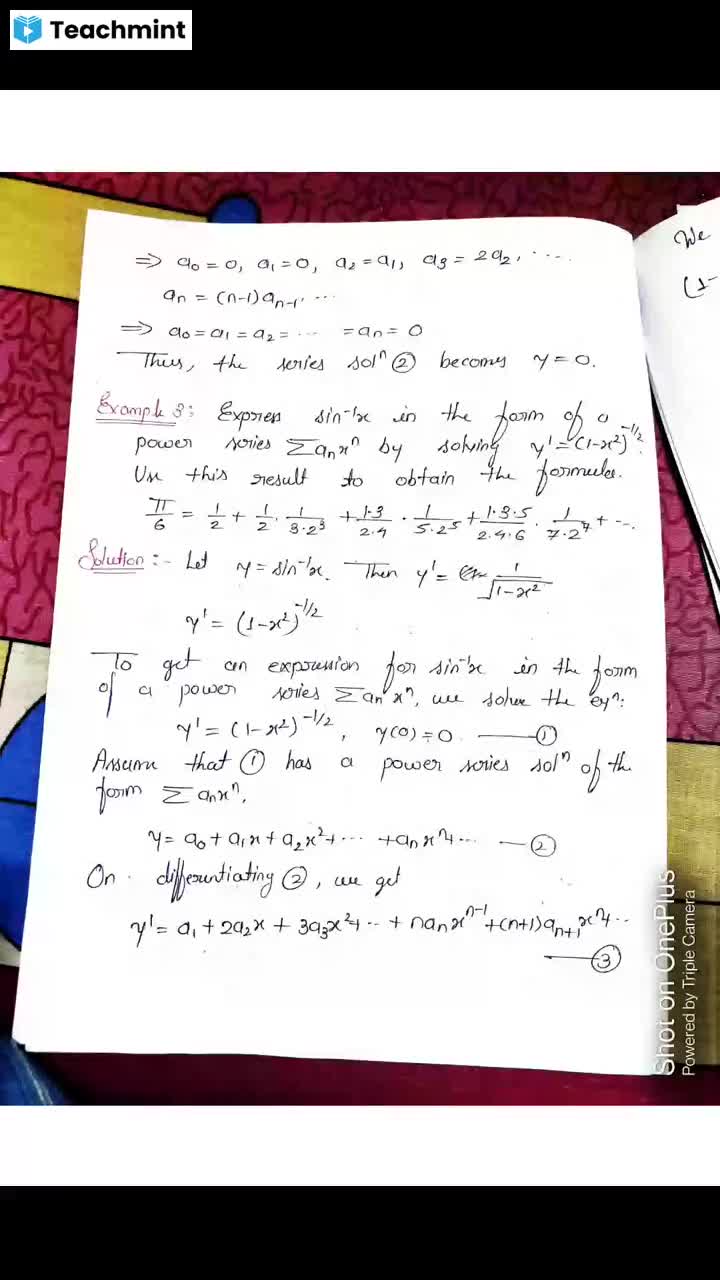 Teachmint
⇒ a₀ = 0, a₁ = 0, a₂ = a₁, a₃ = 2a₂, ....
aₙ = (n-1)aₙ₋₁, ...
⇒ a₀ = a₁ = a₂ = ... = aₙ = 0
Thus, the series solⁿ ② becomes y = 0.
Example 3: Express sin⁻¹x in the form of a
power series Σaₙxⁿ by solving y' = (1-x²)^(-1/2).
Use this result to obtain the formula.
π/6 = 1/2 + 1/2 · 1/(3·2³) + (1·3)/(2·4) · 1/(5·2⁵) + (1·3·5)/(2·4·6) · 1/(7·2⁷) + ...
Solution :- Let y = sin⁻¹x. Then y' = 1/√(1-x²)
y' = (1-x²)^(-1/2)
To get an expression for sin⁻¹x in the form
of a power series Σaₙxⁿ, we solve the eqⁿ:
y' = (1-x²)^(-1/2), y(0) = 0 —— ①
Assume that ① has a power series solⁿ of the
form Σaₙxⁿ.
y = a₀ + a₁x + a₂x² + ... + aₙxⁿ + ... — ②
On differentiating ②, we get
y' = a₁ + 2a₂x + 3a₃x² + ... + naₙxⁿ⁻¹ + (n+1)aₙ₊₁xⁿ + ...
—— ③
We
(1-
Shot on OnePlus
Powered by Triple Camera